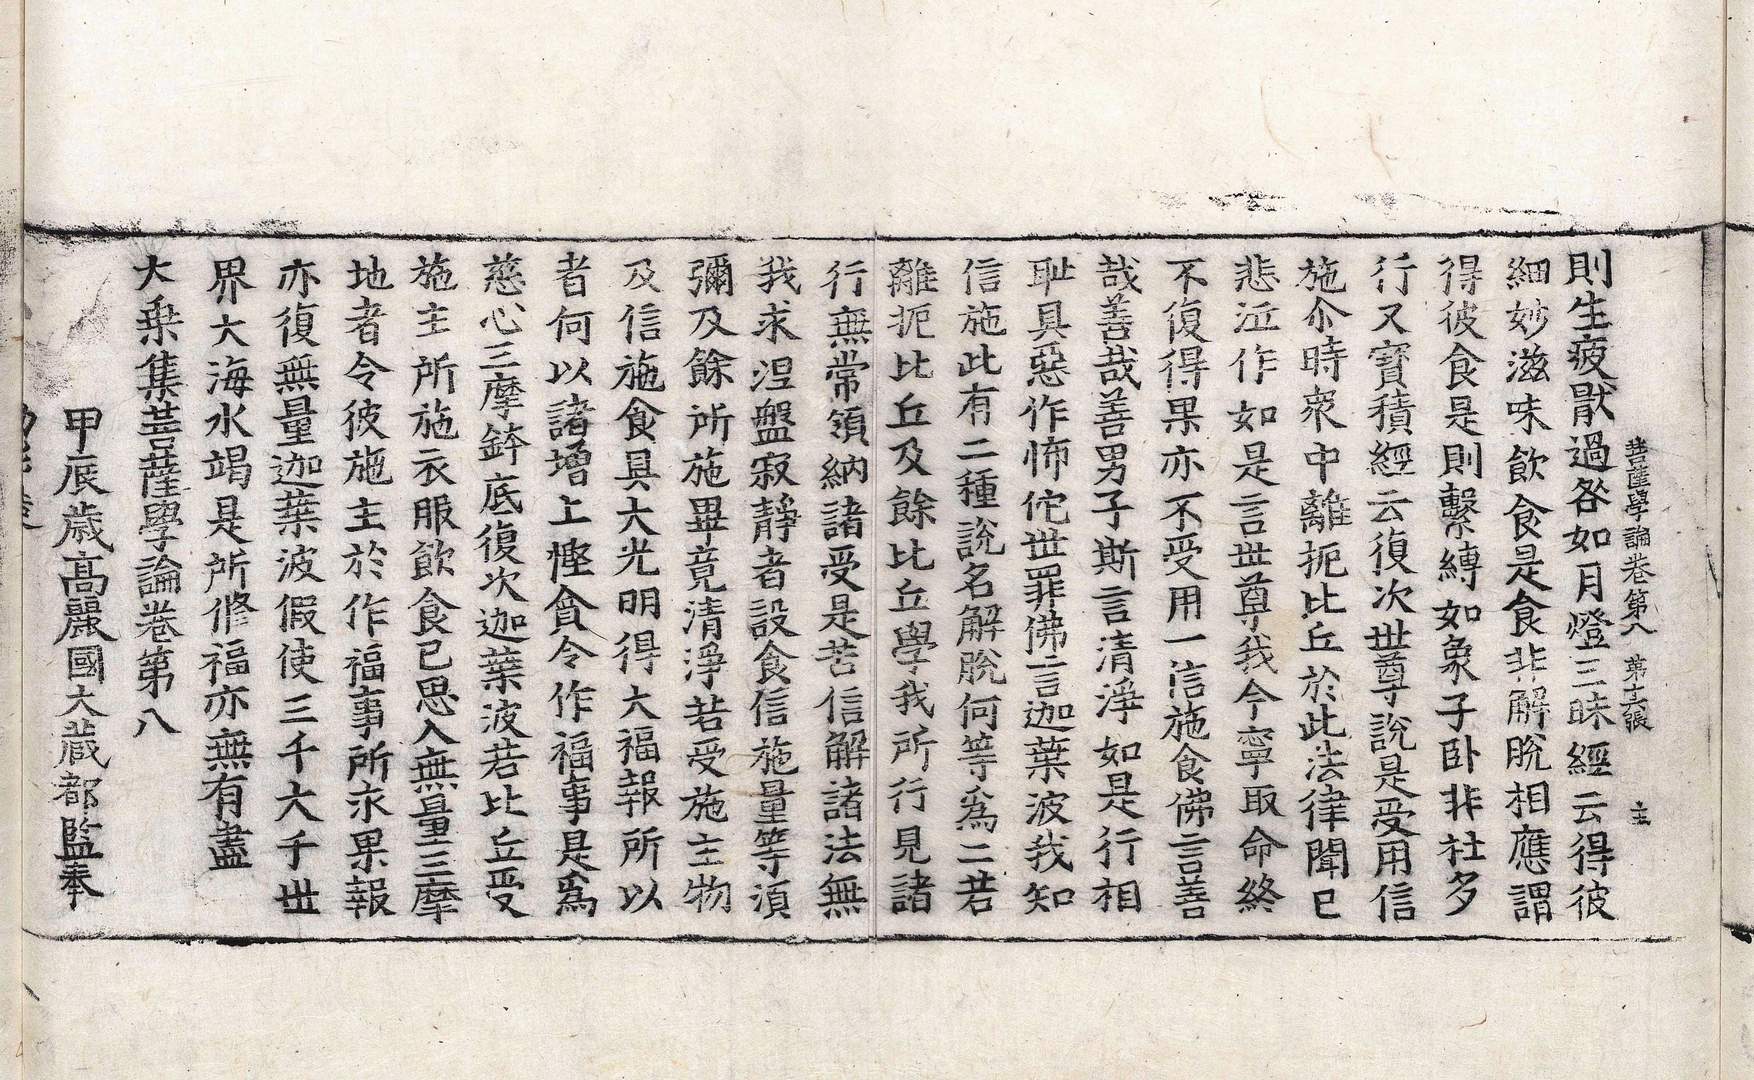 菩薩學論卷第八 第十六張 主
則生疲猒過咎如月燈三昧經云得彼
細妙滋味飲食是食非解脫相應謂
得彼食是則繫縛如象子卧非社多
行又寶積經云復次世尊說是受用信
施尒時衆中離扼比丘於此法律聞已
悲泣作如是言世尊我今寧取命終
不復得果亦不受用一信施食佛言善
哉善哉善男子斯言清淨如是行相
耻具惡作怖佗世罪佛言迦葉波我知
信施此有二種說名解脫何等爲二若
離扼比丘及餘比丘學我所行見諸
行無常領納諸受是苦信解諸法無
我求涅盤寂靜者設食信施量等湏
彌及餘所施畢竟清淨若受施主物
及信施食具大光明得大福報所以
者何以諸增上慳貪令作福事是爲
慈心三摩鉢底復次迦葉波若比丘受
施主所施衣服飲食已思入無量三摩
地者令彼施主於作福事所求果報
亦復無量迦葉波假使三千大千世
界大海水竭是所修福亦無有盡
大乗集菩薩學論卷第八
甲辰歲髙麗國大藏都監奉